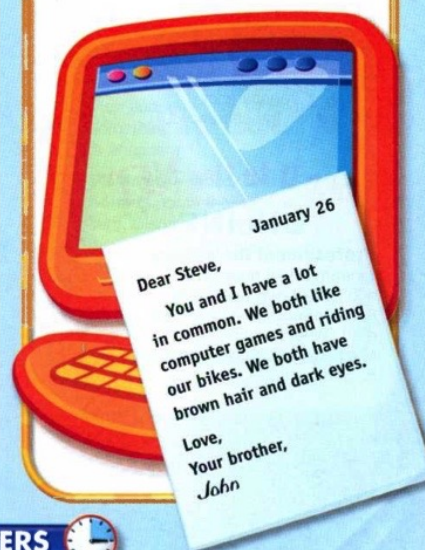 January 26
Dear Steve,
You and I have a lot
in common. We both like
computer games and riding
our bikes. We both have
brown hair and dark eyes.
Love,
Your brother,
John
ERS